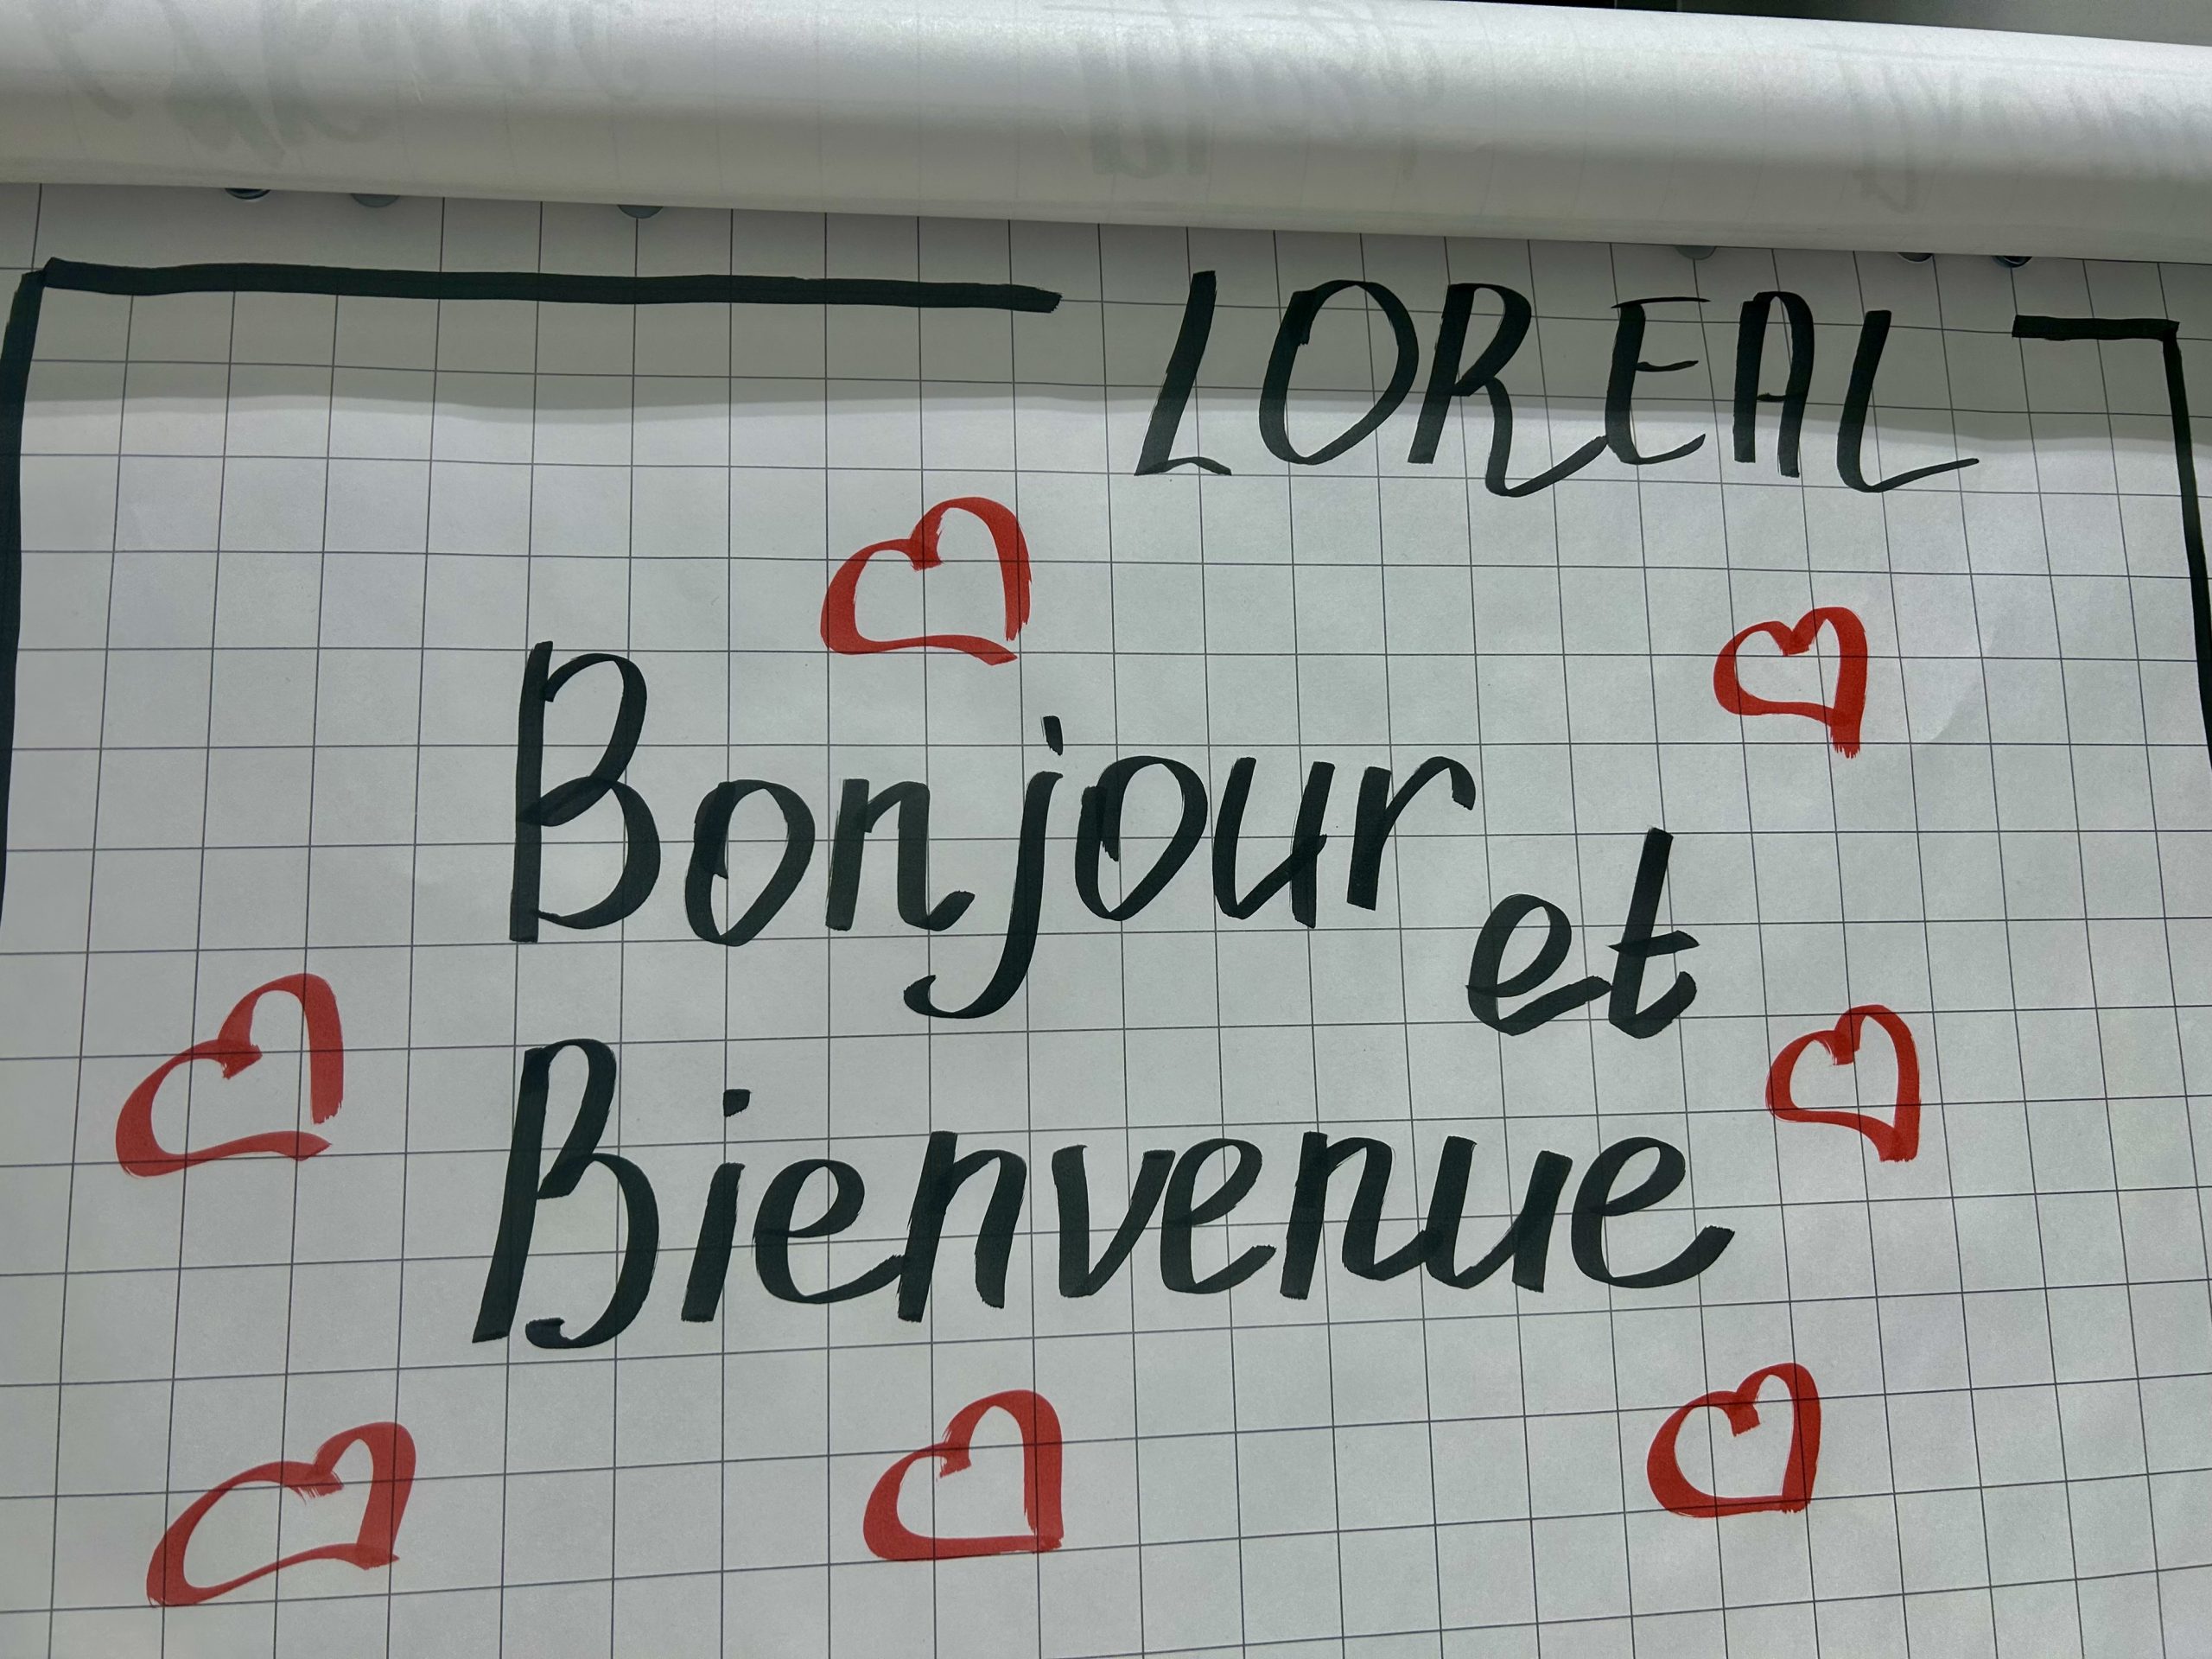 LOREAL
Bonjour
et
Bienvenue